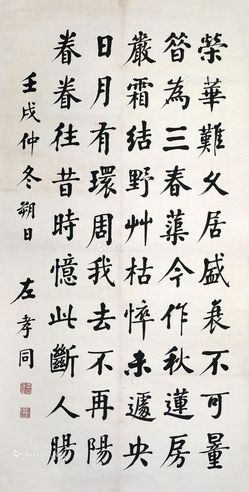 榮華難久居盛衰不可量
昝為三春蕖今作秋蓮房
嚴霜結野艸枯悴未遽央
日月有環周我去不再陽
眷眷往昔時憶此斷人腸
壬戌仲冬朔日
左孝同